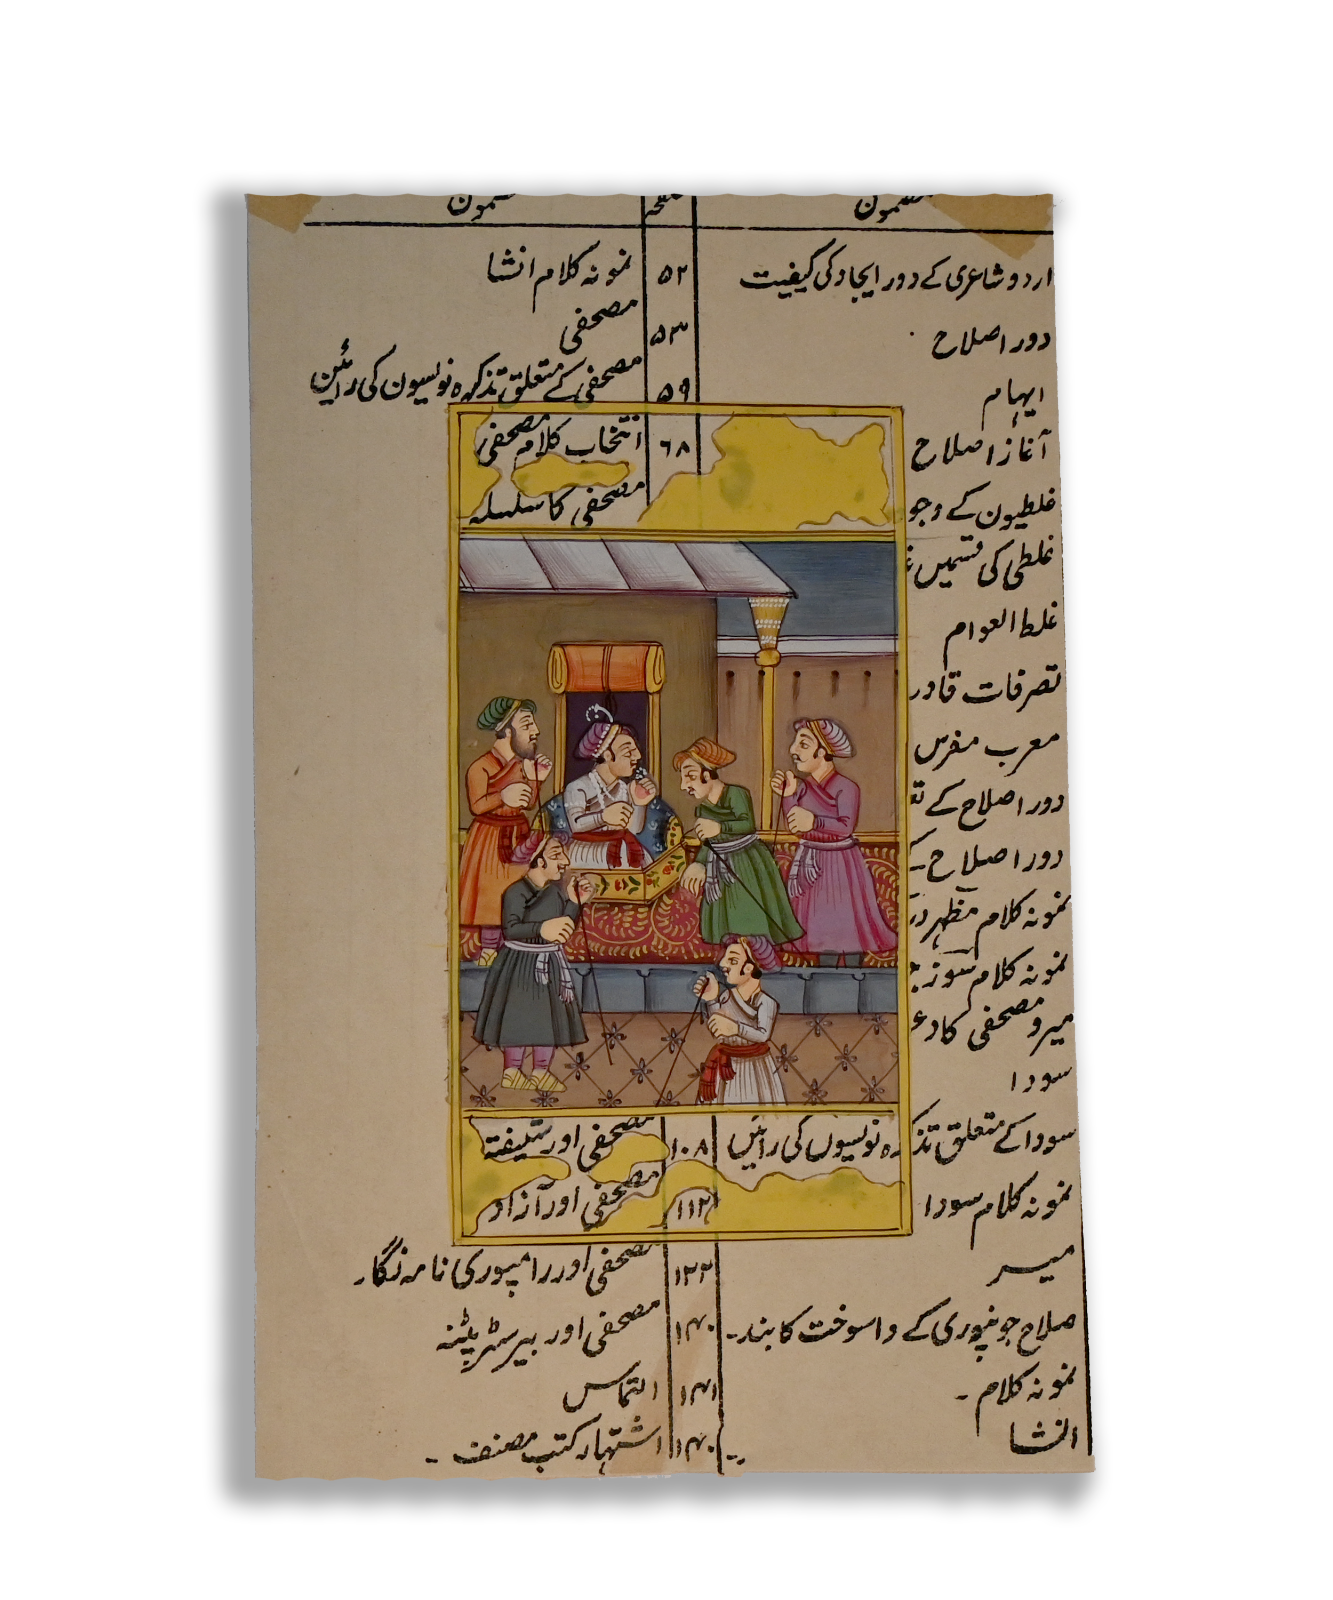 مضمون
صفحہ
مضمون
اردو شاعری کے دور ایجاد کی کیفیت
دور اصلاح
ایہام
آغاز اصلاح
غلطیون کے وجو
غلطی کی قسمیں
غلط العوام
تصرفات قادر
معرب مفرس
دور اصلاح کے
دور اصلاح
نمونہ کلام مظہر
نمونہ کلام سوز
میر و مصحفی کا
سودا
سودا کے متعلق تذکرہ نویسوں کی رائیں
نمونہ کلام سودا
میر
صلاح جونپوری کے واسوخت کا بند۔
نمونہ کلام ۔
انشا
۵۲ نمونہ کلام انشا
۵۳ مصحفی
۵۹ مصحفی کے متعلق تذکرہ نویسیون کی رائین
۶۸ انتخاب کلام مصحفی
مصحفی کا سلسلہ
۱۰۸ مصحفی اور شیفتہ
۱۱۲ مصحفی اور آزاد
۱۲۲ مصحفی اور رامپوری نامہ نگار
۱۴۰ مصحفی اور بیرسٹر پٹنہ
۱۴۱ التماس
۱۴۰ اشتہار کتب مصنف ۔